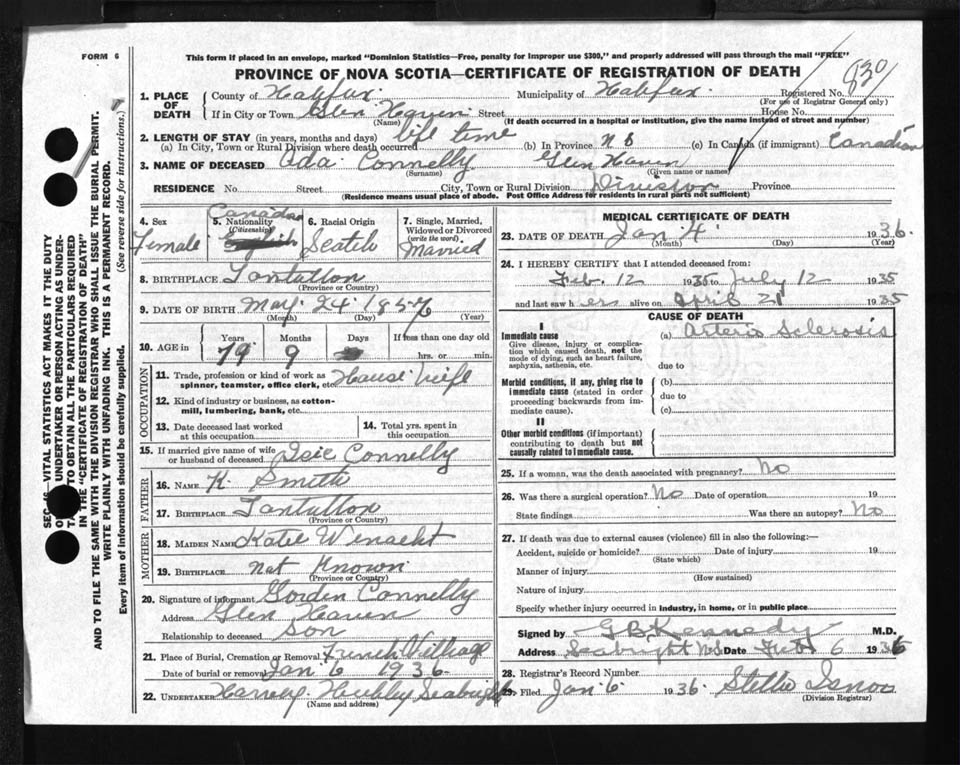 FORM 6
This form if placed in an envelope, marked "Dominion Statistics—Free, penalty for improper use $300," and properly addressed will pass through the mail "FREE"
PROVINCE OF NOVA SCOTIA—CERTIFICATE OF REGISTRATION OF DEATH
830
1. PLACE OF DEATH
County of Halifax Municipality of Halifax Registered No.
(For use of Registrar General only)
If in City or Town Glen Haven Street House No.
(Name) (If death occurred in a hospital or institution, give the name instead of street and number)
2. LENGTH OF STAY (in years, months and days) life time
(a) In City, Town or Rural Division where death occurred (b) In Province N S (c) In Canada (if immigrant) Canadian
3. NAME OF DECEASED Ada Connelly Glen Haven
(Surname) (Given name or names)
RESIDENCE No. Street City, Town or Rural Division Division Province
(Residence means usual place of abode. Post Office Address for residents in rural parts not sufficient)
4. Sex Female
5. Nationality (Citizenship) Canadian English
6. Racial Origin Scotch
7. Single, Married, Widowed or Divorced (write the word) Married
8. BIRTHPLACE Tantallon
(Province or Country)
9. DATE OF BIRTH May 24 1857
(Month) (Day) (Year)
10. AGE in Years 79 Months 9 Days If less than one day old hrs. or min.
OCCUPATION
11. Trade, profession or kind of work as spinner, teamster, office clerk, etc. House Wife
12. Kind of industry or business, as cotton-mill, lumbering, bank, etc.
13. Date deceased last worked at this occupation
14. Total yrs. spent in this occupation
15. If married give name of wife or husband of deceased Connelly
FATHER
16. NAME K. Smith
17. BIRTHPLACE Tantallon
(Province or Country)
MOTHER
18. MAIDEN NAME Katie
19. BIRTHPLACE Not Known
(Province or Country)
20. Signature of informant Gorden Connelly
Address Glen Haven
Relationship to deceased Son
21. Place of Burial, Cremation or Removal French Village
Date of burial or removal Jan 6 1936
22. UNDERTAKER Harvey Hubley Seabright
(Name and address)
MEDICAL CERTIFICATE OF DEATH
23. DATE OF DEATH Jan 4 1936
(Month) (Day) (Year)
24. I HEREBY CERTIFY that I attended deceased from:
Feb. 12 1935 to July 12 1935
and last saw h ers alive on April 21 1935
CAUSE OF DEATH
I
Immediate cause (a) Arterio Sclerosis
Give disease, injury or complication which caused death, not the mode of dying, such as heart failure, asphyxia, asthenia, etc.
due to
Morbid conditions, if any, giving rise to immediate cause (stated in order proceeding backwards from immediate cause).
(b)
due to
(c)
II
Other morbid conditions (if important) contributing to death but not causally related to immediate cause.
25. If a woman, was the death associated with pregnancy? No
26. Was there a surgical operation? No Date of operation 19
State findings Was there an autopsy? No
27. If death was due to external causes (violence) fill in also the following:—
Accident, suicide or homicide? Date of injury 19
(State which)
Manner of injury
(How sustained)
Nature of injury
Specify whether injury occurred in industry, in home, or in public place
Signed by G B Kennedy M.D.
Address Seabright N.S. Date 6 1936
28. Registrar's Record Number
29. Filed Jan 6 1936
(Division Registrar)
SEC. VITAL STATISTICS ACT MAKES IT THE DUTY
UNDERTAKER OR PERSON ACTING AS UNDER-
TO OBTAIN ALL THE PARTICULARS REQUIRED
IN THE "CERTIFICATE OF REGISTRATION OF DEATH"
AND TO FILE THE SAME WITH THE DIVISION REGISTRAR WHO SHALL ISSUE THE BURIAL PERMIT.
WRITE PLAINLY WITH UNFADING INK. THIS IS A PERMANENT RECORD.
Every item of information should be carefully supplied. (See reverse side for instructions.)